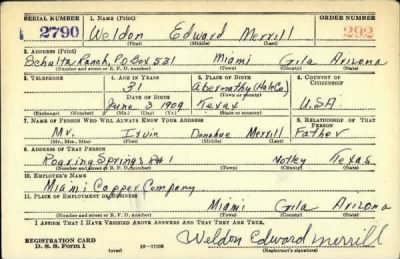 SERIAL NUMBER 1. NAME (Print) ORDER NUMBER
2790 Weldon Edward Merrill 292
(First) (Middle) (Last)
2. ADDRESS (Print)
Schultz Ranch, P.O. Box 531 Miami Gila Arizona
(Number and street or R. F. D. number) (Town) (County) (State)
3. TELEPHONE 4. AGE IN YEARS 5. PLACE OF BIRTH 6. COUNTRY OF CITIZENSHIP
31 Abernathy (Hale Co.)
DATE OF BIRTH (Town or county)
June 3 1909 Texas U.S.A.
(Exchange) (Number) (Mo.) (Day) (Yr.) (State or country)
7. NAME OF PERSON WHO WILL ALWAYS KNOW YOUR ADDRESS 8. RELATIONSHIP OF THAT PERSON
Mr. Irvin Donahue Merrill Father
(Mr., Mrs., Miss) (First) (Middle) (Last)
9. ADDRESS OF THAT PERSON
Roaring Springs Rt 1 Motley Texas
(Number and street or R. F. D. number) (Town) (County) (State)
10. EMPLOYER'S NAME
Miami Copper Company
11. PLACE OF EMPLOYMENT OR BUSINESS
Miami Gila Arizona
(Number and street or R. F. D. number) (Town) (County) (State)
I AFFIRM THAT I HAVE VERIFIED ABOVE ANSWERS AND THAT THEY ARE TRUE.
REGISTRATION CARD
D. S. S. Form 1 (over) Weldon Edward Merrill
(Registrant's signature)